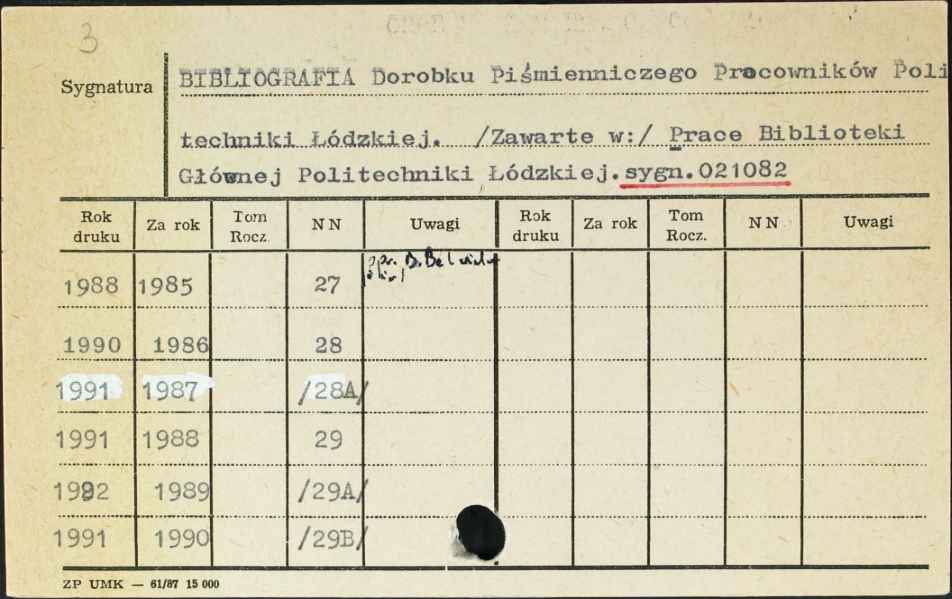 3
Sygnatura
BIBLIOGRAFIA Dorobku Piśmienniczego Pracowników Poli
techniki Łódzkiej. /Zawarte w:/ Prace Biblioteki
Głównej Politechniki Łódzkiej.sygn.021082
Rok druku Za rok Tom Rocz. NN Uwagi Rok druku Za rok Tom Rocz. NN Uwagi
opr. B.
1988 1985 27
1990 1986 28
1991 1987 /28A/
1991 1988 29
1992 1989 /29A/
1991 1990 /29B/
ZP UMK — 61/87 15 000